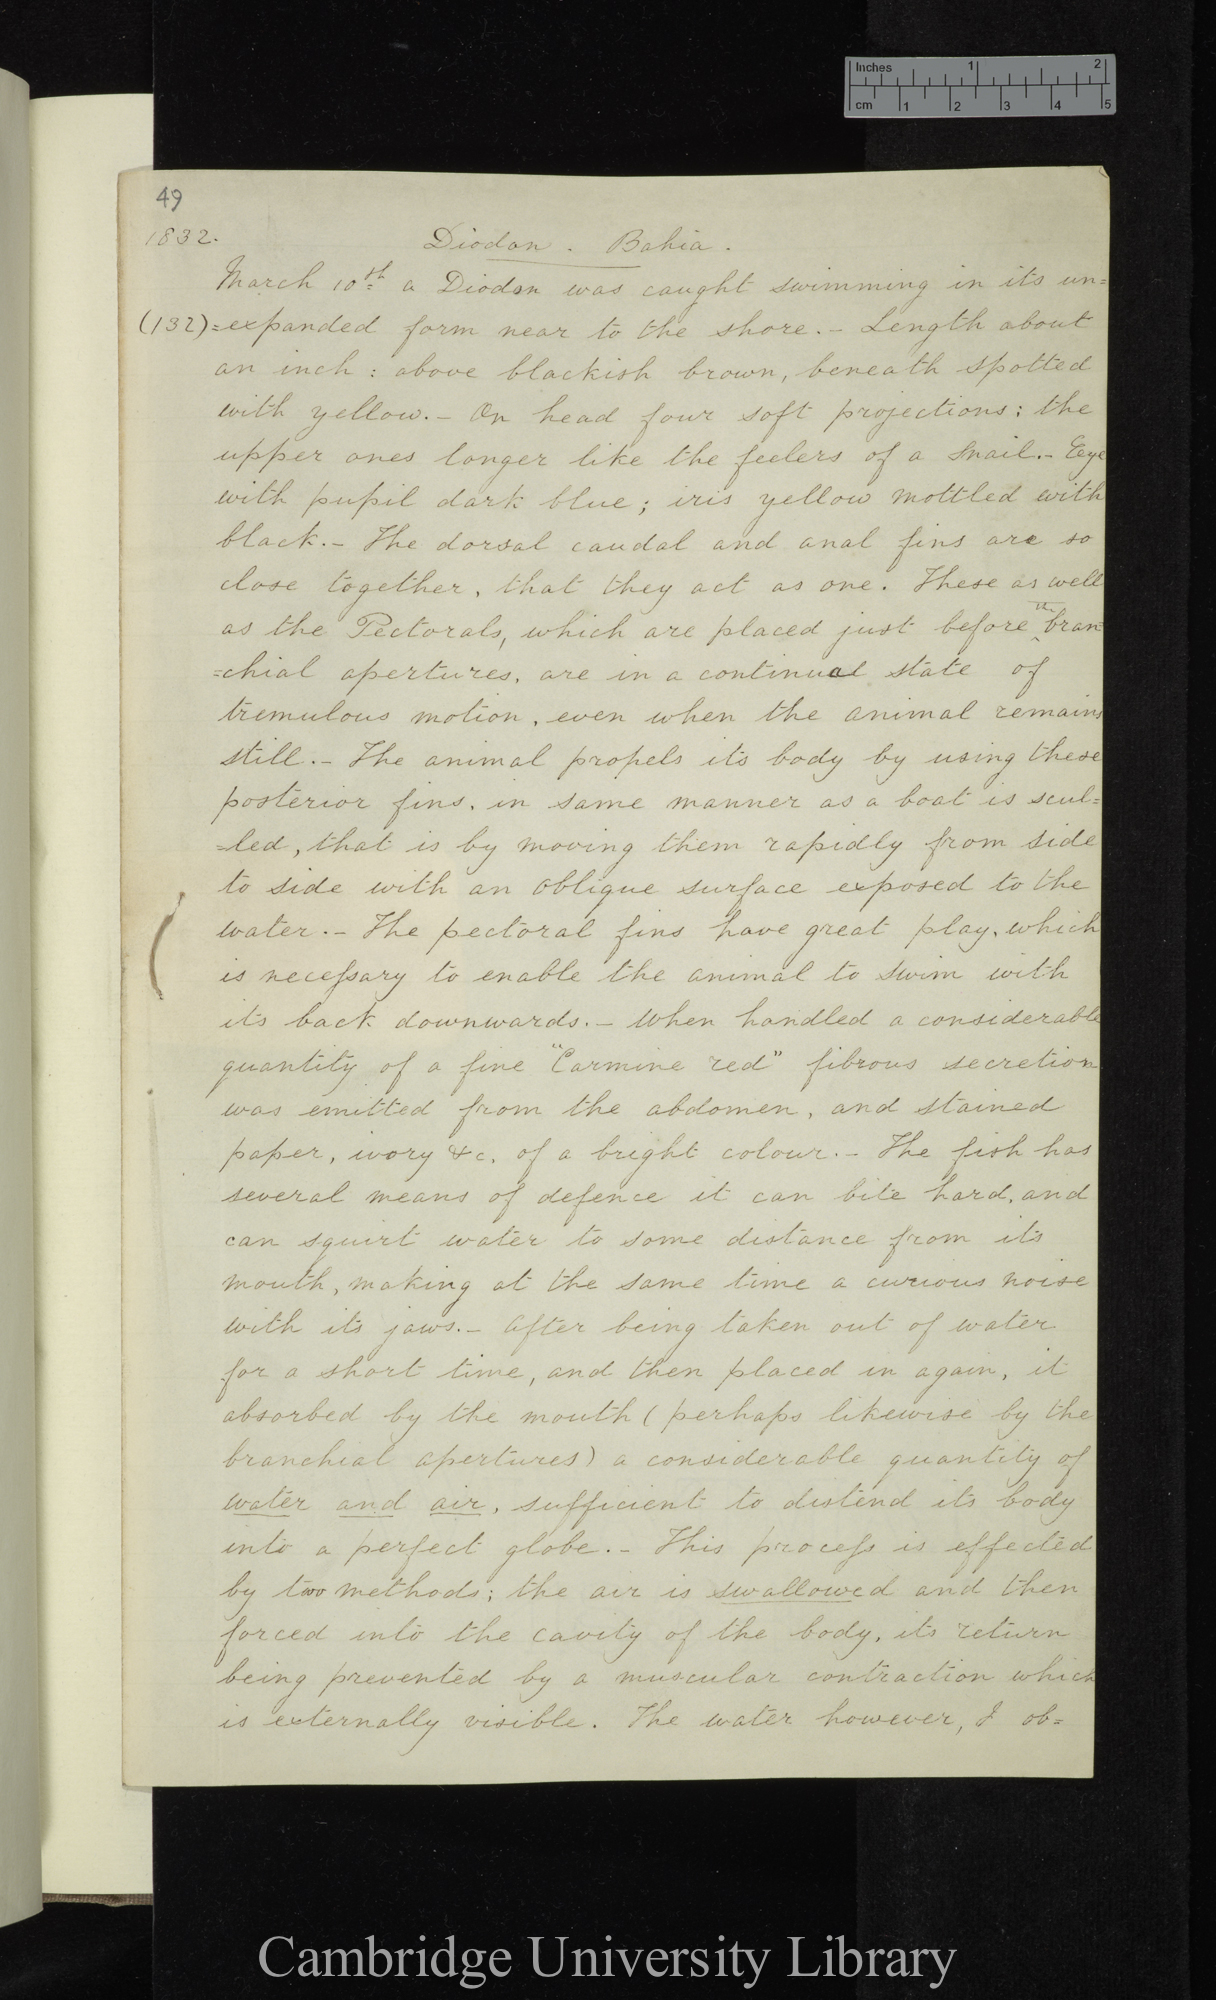 Inches 1 2
cm 1 2 3 4 5
49
1832.
Diodon. Bahia.
March 10th a Diodon was caught swimming in its un=
(132) =expanded form near to the shore.- Length about
an inch: above blackish brown, beneath spotted
with yellow.- On head four soft projections; the
upper ones longer like the feelers of a snail.- Eye
with pupil dark blue; iris yellow mottled with
black.- The dorsal caudal and anal fins are so
close together, that they act as one. These as well
as the Pectorals, which are placed just before the bran
=chial apertures, are in a continual state of
tremulous motion, even when the animal remains
still.- The animal propels its body by using these
posterior fins, in same manner as a boat is scul=
=led, that is by moving them rapidly from side
to side with an oblique surface exposed to the
water.- The pectoral fins have great play, which
is necessary to enable the animal to swim with
its back downwards.- When handled a considerable
quantity of a fine "Carmine red" fibrous secretion
was emitted from the abdomen, and stained
paper, ivory &c. of a bright colour.- The fish has
several means of defence it can bite hard, and
can squirt water to some distance from its
mouth, making at the same time a curious noise
with its jaws.- After being taken out of water
for a short time, and then placed in again, it
absorbed by the mouth (perhaps likewise by the
branchial apertures) a considerable quantity of
water and air, sufficient to distend its body
into a perfect globe.- This process is effected
by two methods: the air is swallowed and then
forced into the cavity of the body, its return
being prevented by a muscular contraction which
is externally visible. The water however, I ob=
Cambridge University Library